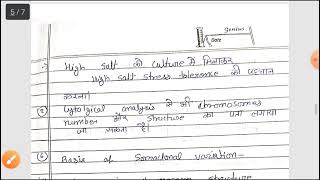 5/7
Genius
Date
→ High salt को culture मे मिलाकर
High salt stress tolerance की पहचान
करना।
Cytolgical analysis से भी chromosomes
number और structure का पता लगाया
जा सकता है।
Basis of Somaclonal variation-
structure